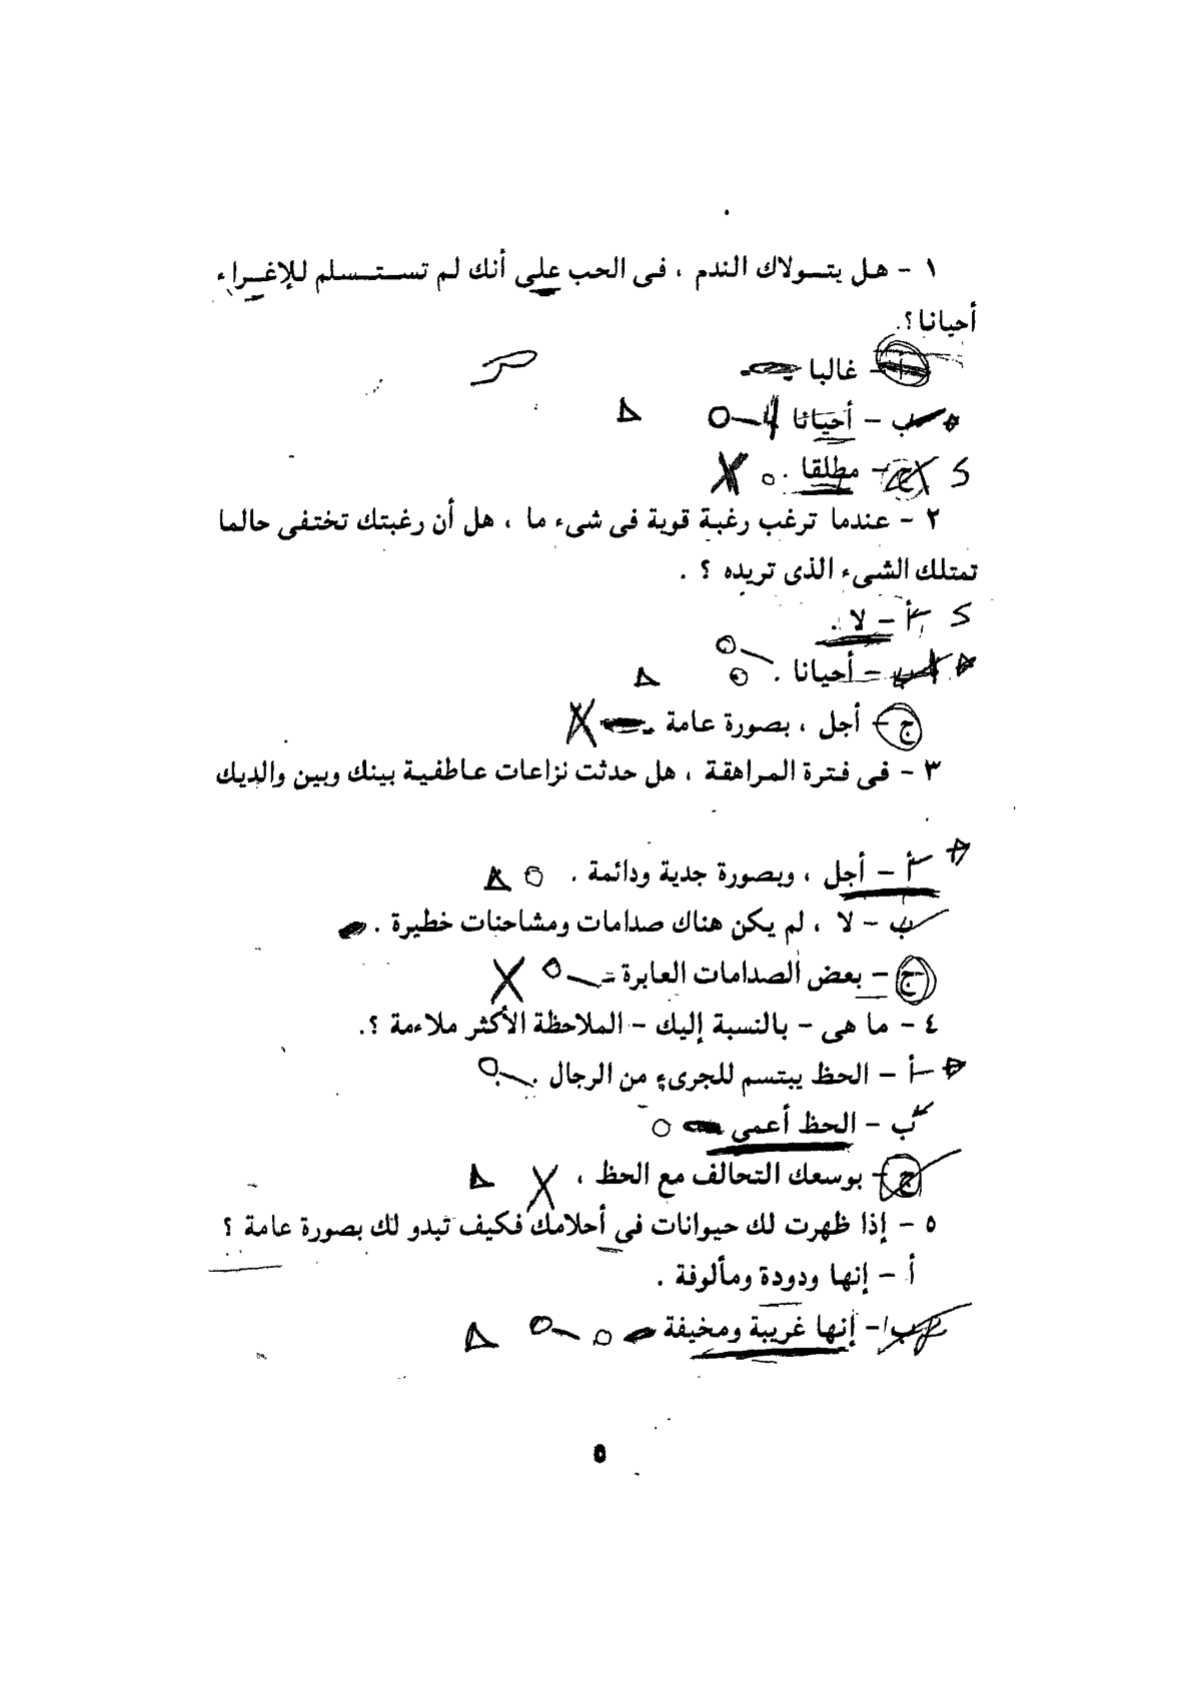 ١ - هل يتولاك الندم ، فى الحب على أنك لم تستسلم للإغراء
أحيانا ؟.
أ - غالبا
ب - أحيانا
ج - مطلقا .
٢ - عندما ترغب رغبة قوية فى شىء ما ، هل أن رغبتك تختفى حالما
تمتلك الشىء الذى تريده ؟ .
أ - لا .
ب - أحيانا .
ج - أجل ، بصورة عامة .
٣ - فى فترة المراهقة ، هل حدثت نزاعات عاطفية بينك وبين والديك
أ - أجل ، وبصورة جدية ودائمة .
ب - لا ، لم يكن هناك صدامات ومشاحنات خطيرة .
ج - بعض الصدامات العابرة
٤ - ما هى - بالنسبة إليك - الملاحظة الأكثر ملاءمة ؟.
أ - الحظ يبتسم للجرىء من الرجال .
ب - الحظ أعمى
ج - بوسعك التحالف مع الحظ ،
٥ - إذا ظهرت لك حيوانات فى أحلامك فكيف تبدو لك بصورة عامة ؟
أ - إنها ودودة ومألوفة .
ب - إنها غريبة ومخيفة
٥